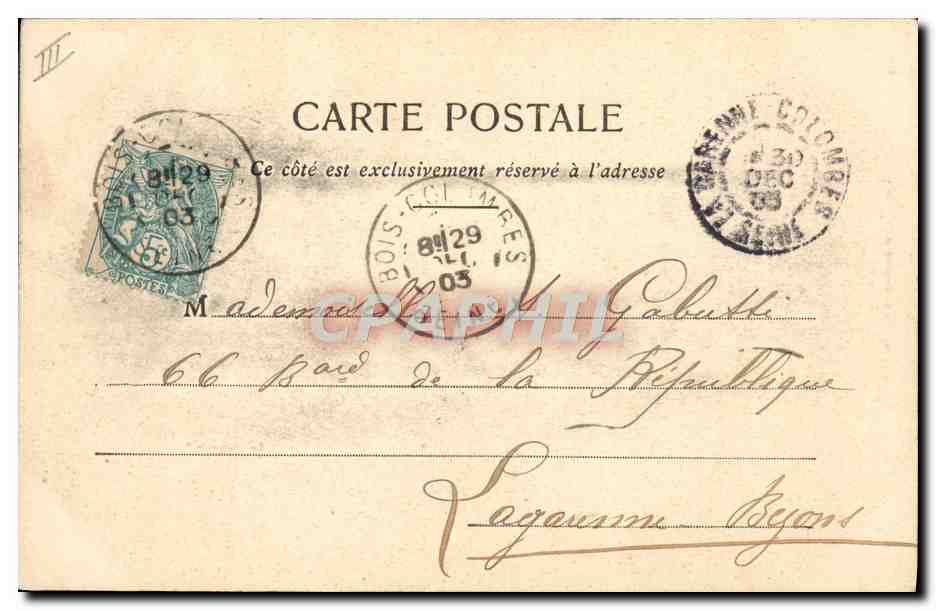 III
CARTE POSTALE
Ce côté est exclusivement réservé à l'adresse
BOIS-COL
8H 29
03
5c
POSTES
BOIS-COL MBES
8H 29
03
SEINE
LA GARENNE-COLOMBES
30
DEC
03
SEINE
CPAPHIL
Mademoiselle Gabutti
66 Bard de la République
Lagarenne-Bezons